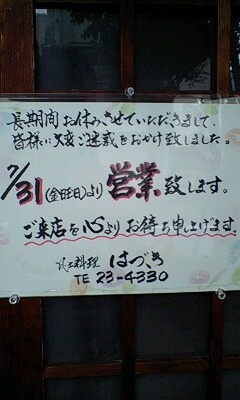 長期間お休みさせていただきまして、
皆様に大変ご迷惑をおかけ致しました。
7/31(金曜日)より営業致します。
ご来店を心よりお待ち申し上げます。
料理 はづき
TE 23-4330